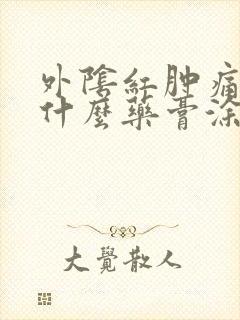 外陰紅肿痛
什麼藥膏涂
大覺散人